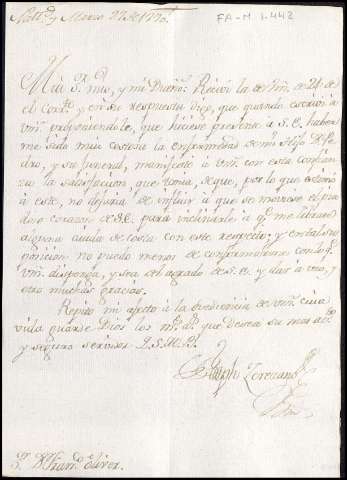 Marzo 27 de 1770
FA-M 1.442
Mui Sr. mio, y mi Dueño: Recivi la de Vm. de 24 de
el corte. y en su respuesta digo, que quando escrivi a
Vm. proponiendole, que hiciese presente a S.E. haber
me sido mui costosa la enfermedad de mi Hijo Dn. Pe
dro, y su funeral, manifesté a Vm. con esta confian
za la satisfaccion que tenia, de que, por lo que estimo
a este, no dejaria de influir a que se moviese el pia
doso corazon de S.E. para inclinarle a qe. me librase
alguna aiuda de costa con este respecto; y en tal su
posicion no puedo menos de conformarme con lo qe.
Vm. disponga, y sea del agrado de S.E. y dar a uno, y
otro muchas gracias.
Repito mi afecto a la obediencia de Vm. cuia
vida guarde Dios los ms. as. que desea su mas
y seguro servidor Q.S.M.B.
Joseph
Sr. Dn. Franco. Oliver.